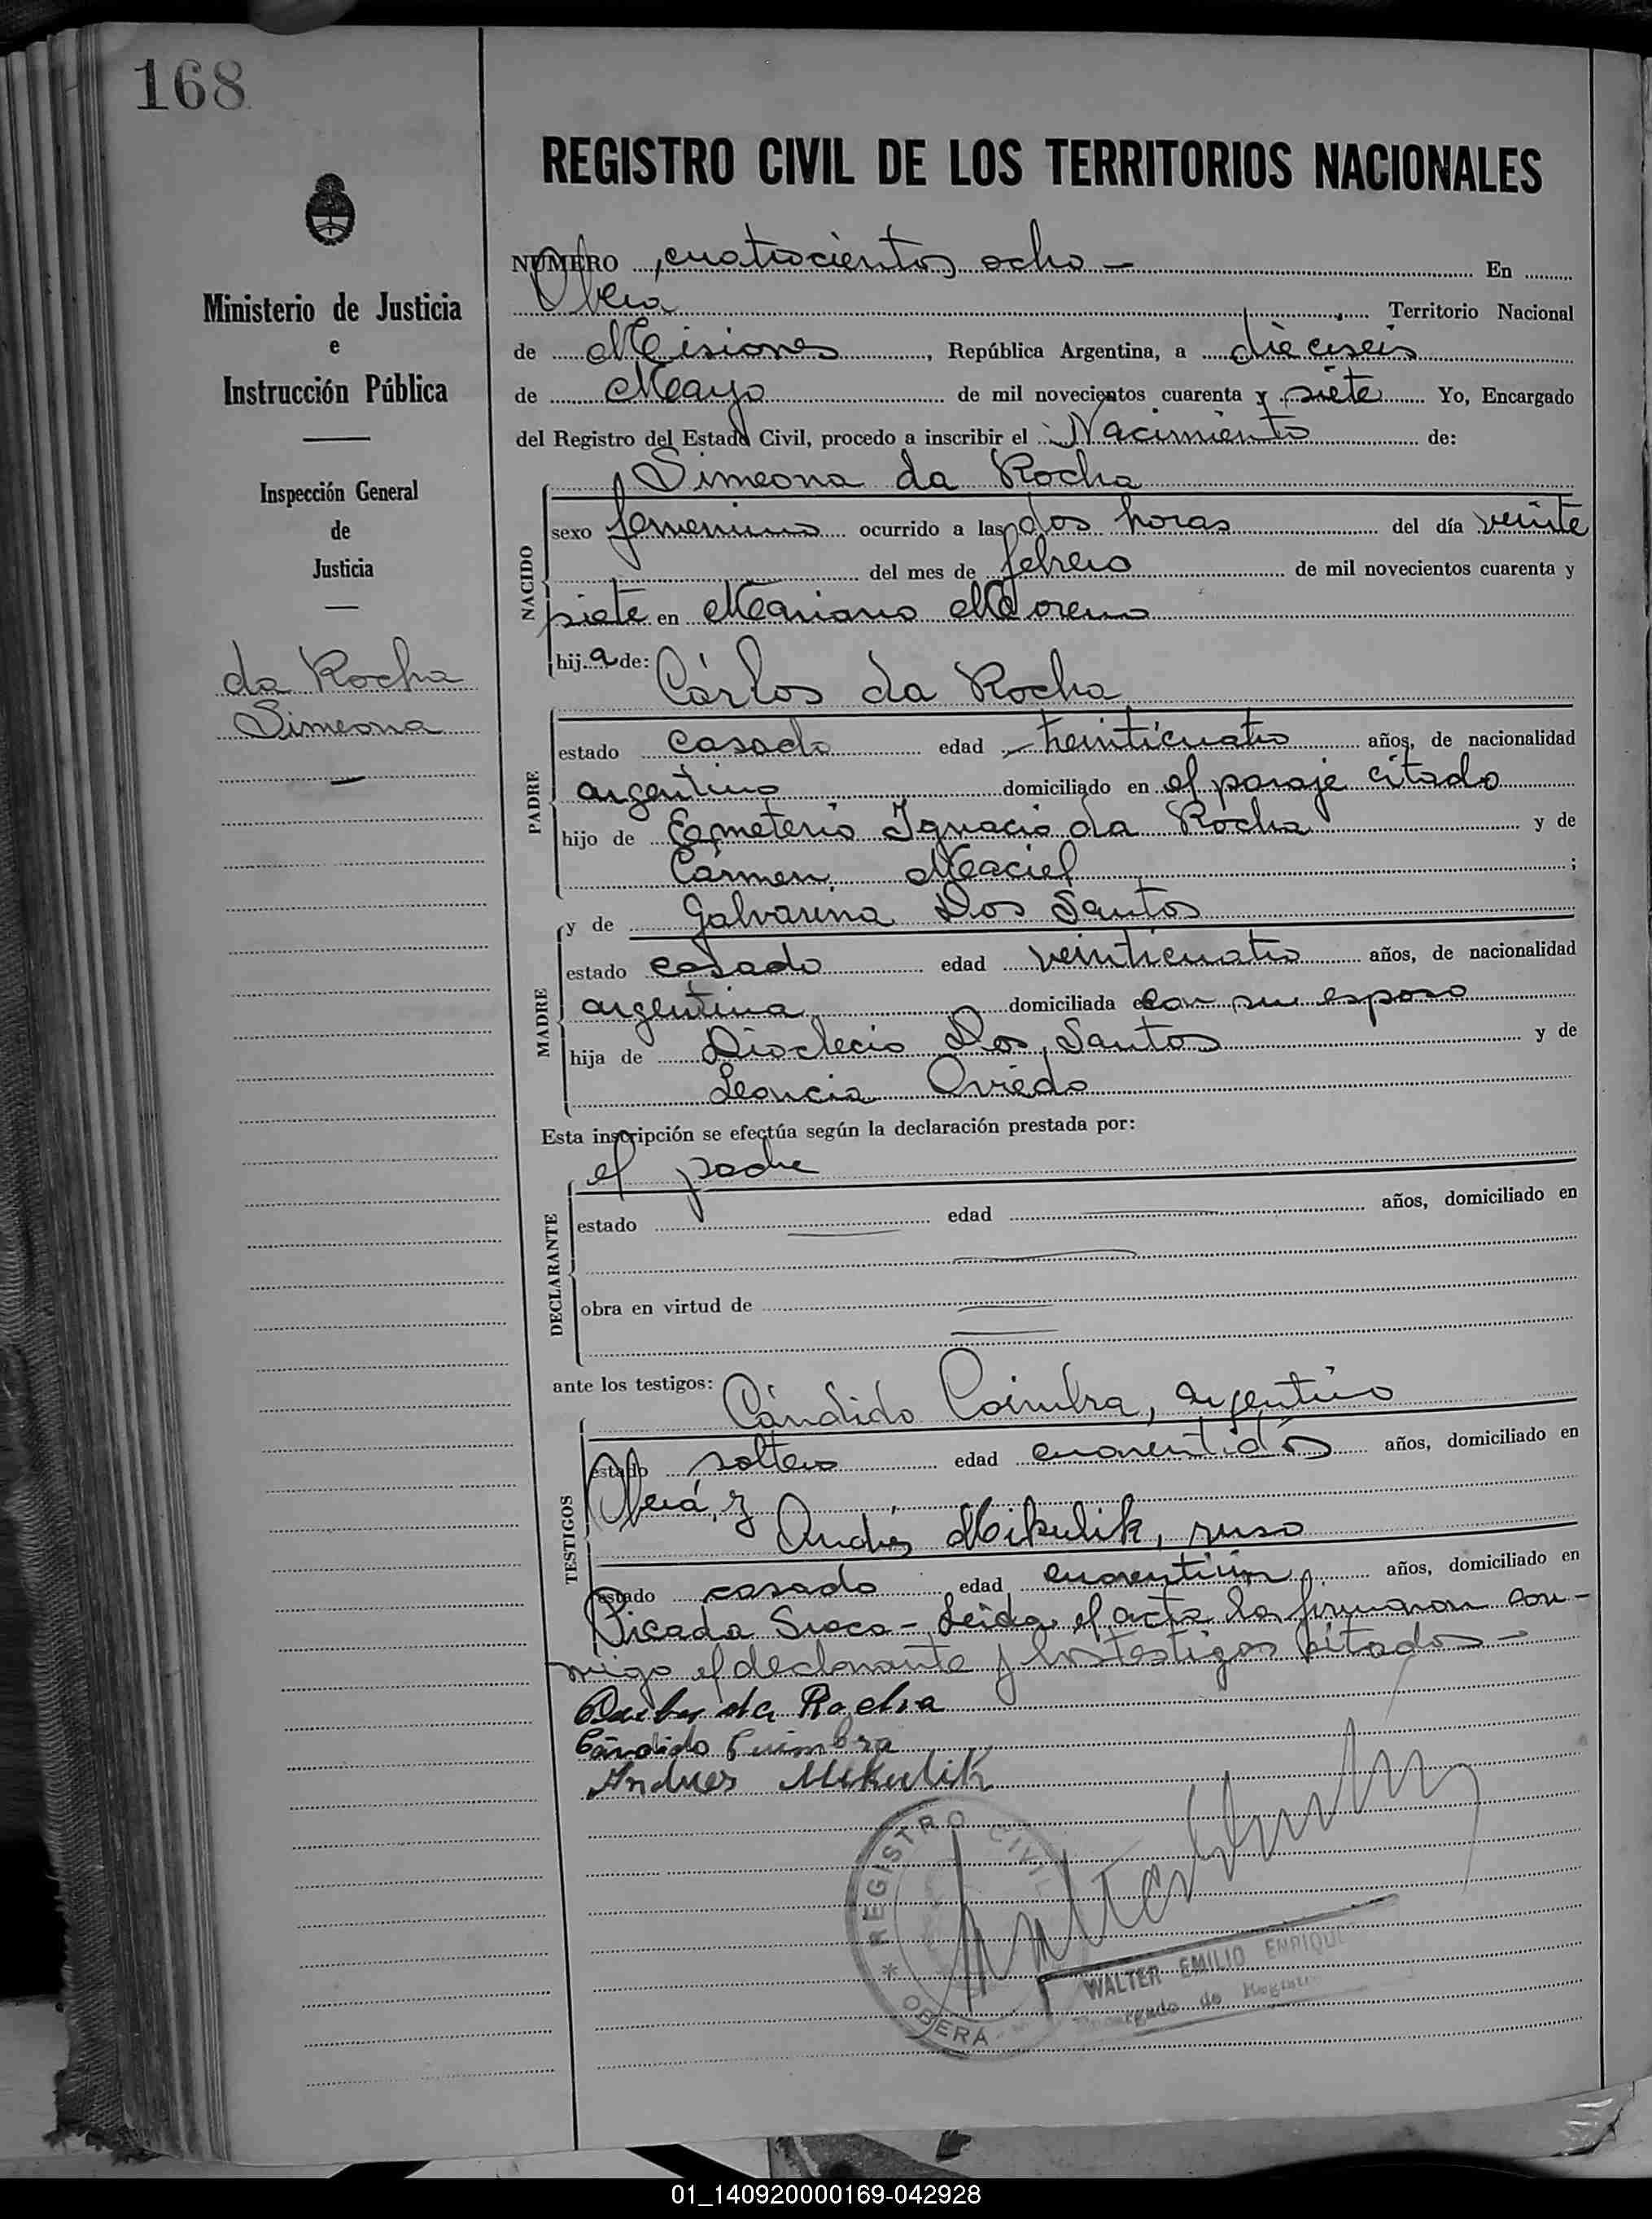 168
REGISTRO CIVIL DE LOS TERRITORIOS NACIONALES
Ministerio de Justicia
e
Instrucción Pública
Inspección General
de
Justicia
da Rocha
Simeona
NUMERO cuatrocientos ocho - En
Oberá Territorio Nacional
de Misiones, República Argentina, a dieciseis
de Mayo de mil novecientos cuarenta y siete Yo, Encargado
del Registro del Estado Civil, procedo a inscribir el Nacimiento de:
Simeona da Rocha
NACIDO
sexo femenino ocurrido a las dos horas del día veinte
del mes de febrero de mil novecientos cuarenta y
siete en Mariano Moreno
hija de: Cárlos da Rocha
PADRE
estado casado edad treinticuatro años, de nacionalidad
argentino domiciliado en el paraje citado
hijo de Eemeterio Ignacio da Rocha y de
Cármen Maciel ;
y de Galvarina Dos Santos
MADRE
estado casado edad veinticuatro años, de nacionalidad
argentina domiciliada en con su esposo
hija de Dioclecio Dos Santos y de
Leoncia Oviedo
Esta inscripción se efectúa según la declaración prestada por:
el padre
DECLARANTE
estado edad años, domiciliado en
obra en virtud de
ante los testigos: Cándido Coimbra, argentino
TESTIGOS
estado soltero edad cuarentidós años, domiciliado en
Oberá, y
Andrés Mikulik, ruso
estado casado edad cuarentiún años, domiciliado en
Picada Sueca - Leida el acta la firmaron con-
migo el declarante y los testigos citados -
da Rocha
Cándido Cuimbra
Andres Mikulik
REGISTRO CIVIL
* OBERA
WALTER EMILIO ENRIQUE
Encargado de Registro
01_140920000169-042928